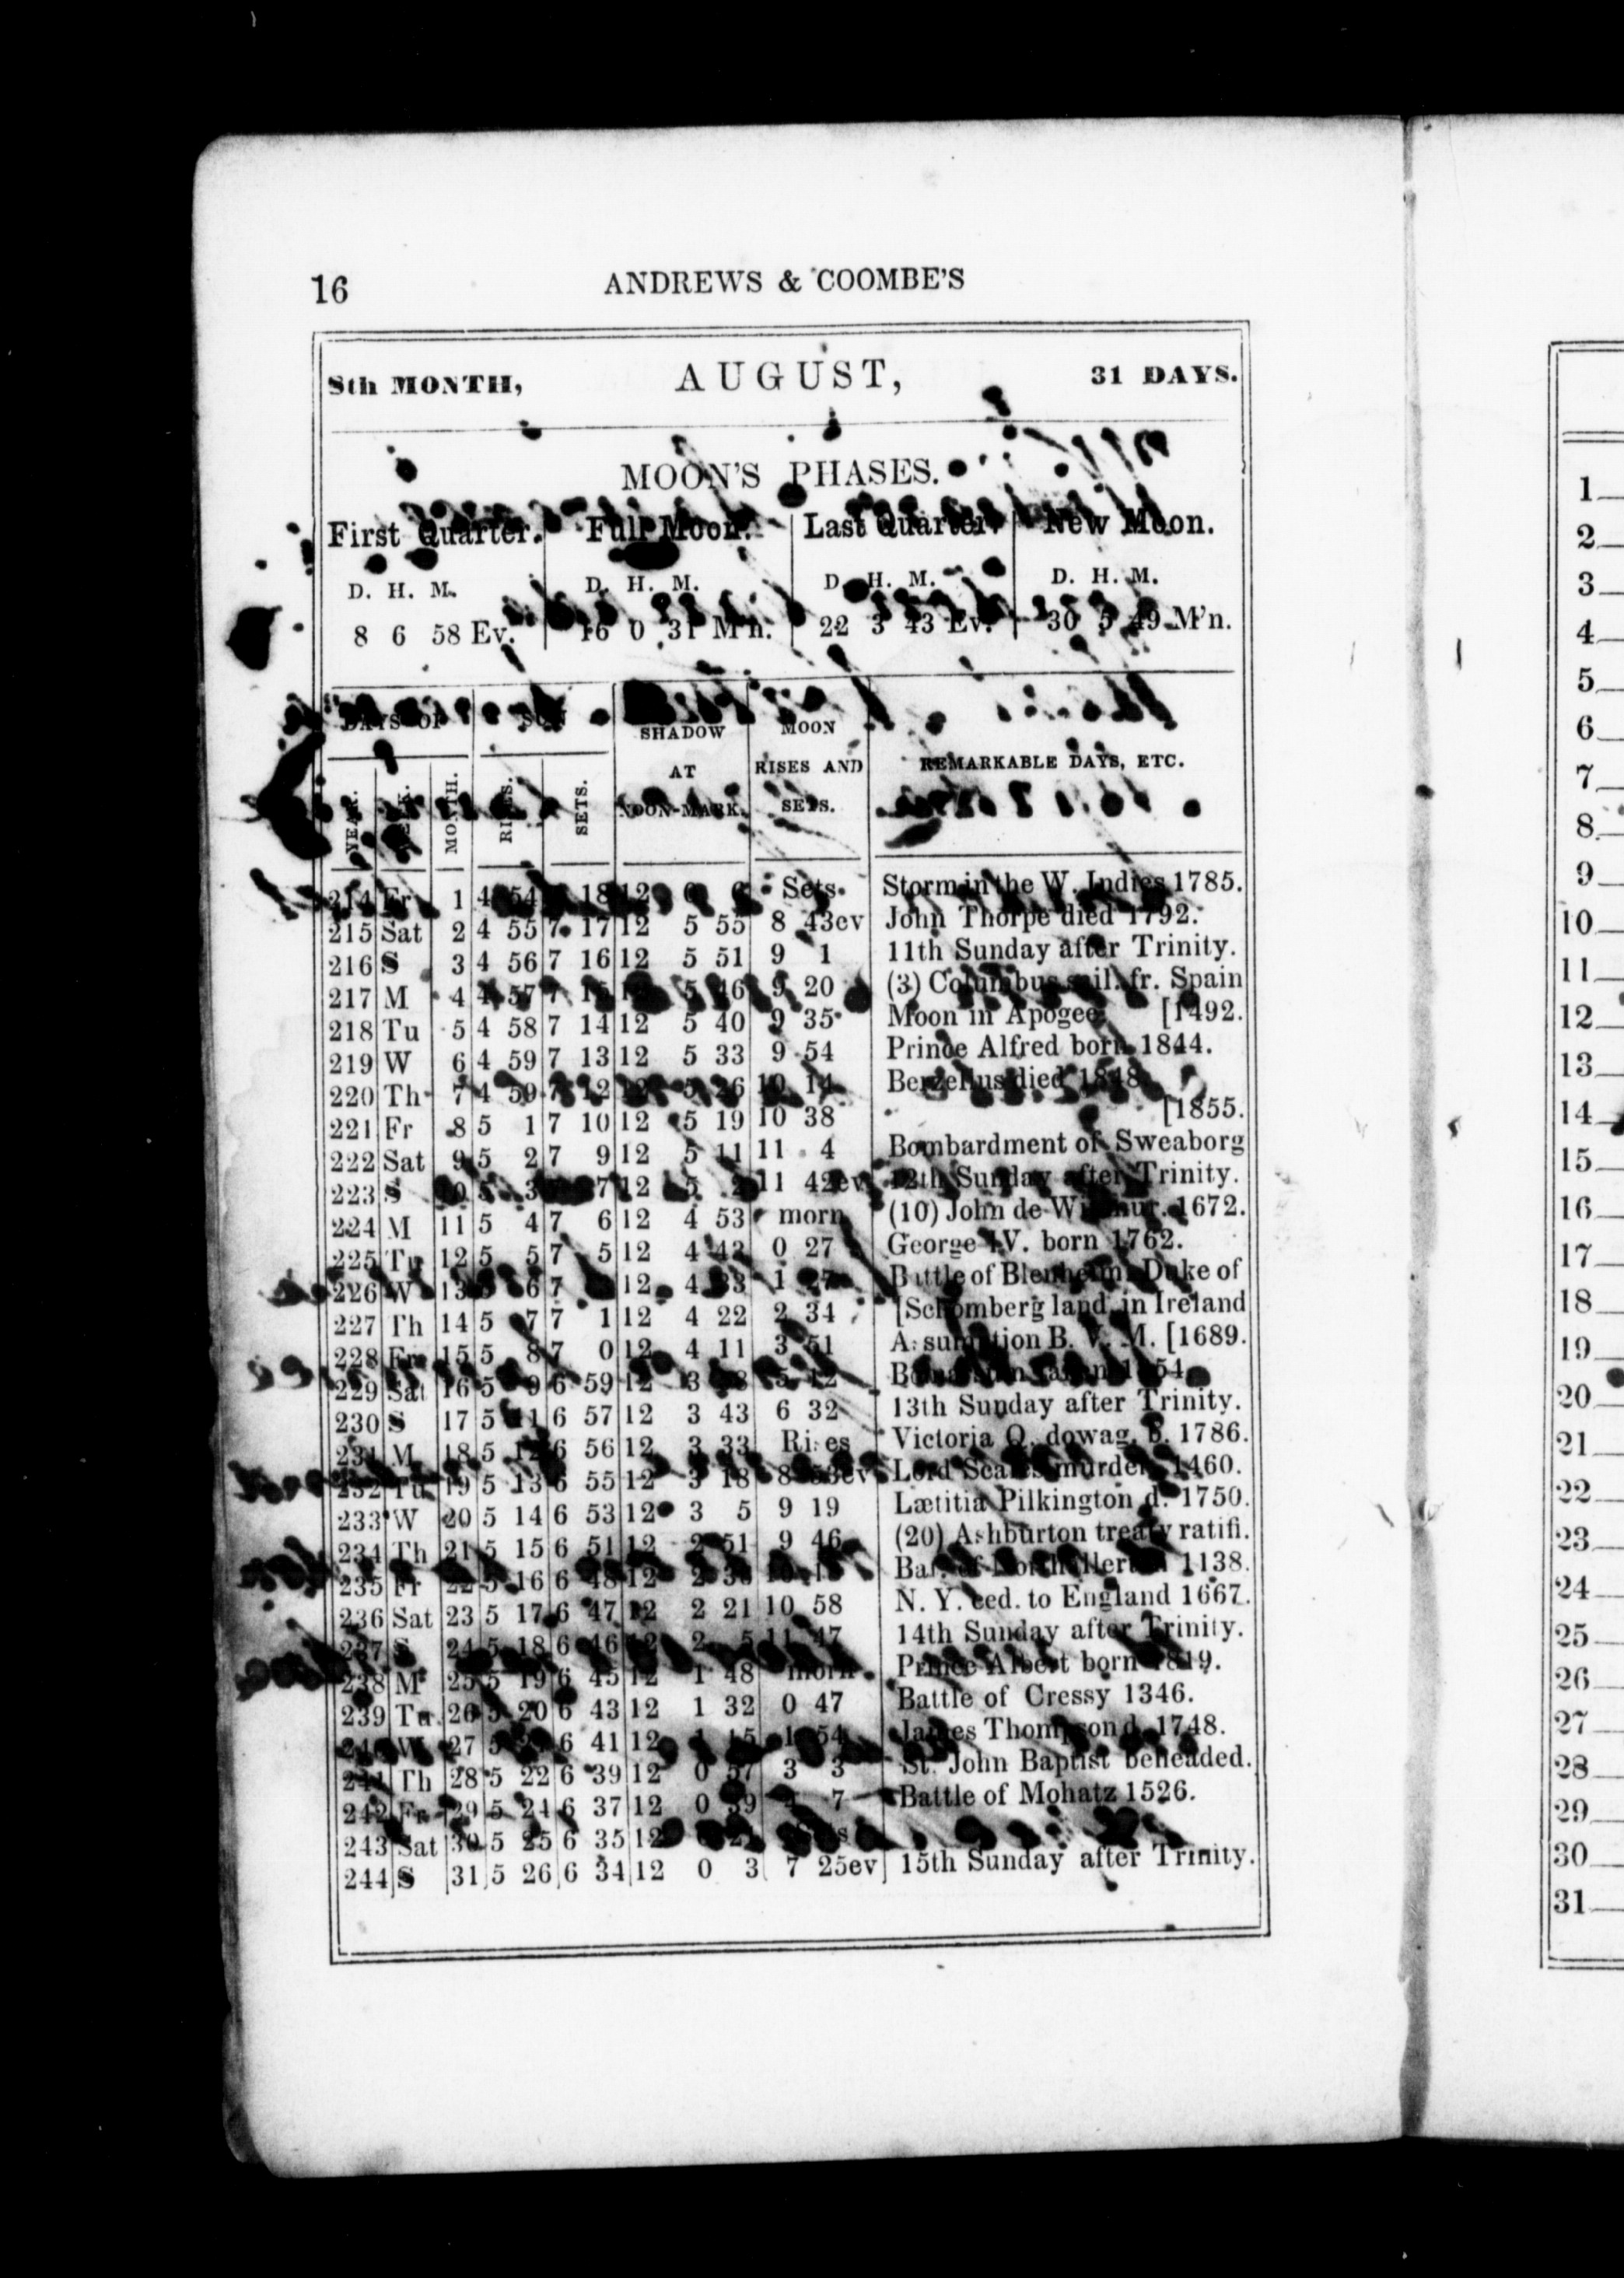 16
ANDREWS & COOMBE'S
8th MONTH, AUGUST, 31 DAYS.
MOON'S PHASES.
First Quarter. Full Moon. Last Quarter. New Moon.
D. H. M. D. H. M. D. H. M. D. H. M.
8 6 58 Ev. 16 0 31 M'n. 22 3 43 Ev. 30 5 49 M'n.
DAYS OF SUN SHADOW AT NOON-MARK. MOON RISES AND SETS. REMARKABLE DAYS, ETC.
YEAR. WEEK. MONTH. RISES. SETS.
214 Fr 1 4 54 18 12 Sets Storm in the W. Indies 1785.
215 Sat 2 4 55 7 17 12 5 55 8 43ev John Thorpe died 1792.
216 S 3 4 56 7 16 12 5 51 9 1 11th Sunday after Trinity.
217 M 4 4 57 7 15 5 46 9 20 (3) Columbus sail. fr. Spain
218 Tu 5 4 58 7 14 12 5 40 9 35 Moon in Apogee. [1492.
219 W 6 4 59 7 13 12 5 33 9 54 Prince Alfred born 1844.
220 Th 7 4 59 7 12 12 5 26 10 14 Berzelius died 1848.
221 Fr 8 5 1 7 10 12 5 19 10 38 [1855.
222 Sat 9 5 2 7 9 12 5 11 11 4 Bombardment of Sweaborg
223 S 10 5 3 7 12 5 2 11 42ev 12th Sunday after Trinity.
224 M 11 5 4 7 6 12 4 53 morn (10) John de 1672.
225 Tu 12 5 5 7 5 12 4 43 0 27 George IV. born 1762.
226 W 13 6 7 12 4 33 1 27 Battle of Blenheim. Duke of
227 Th 14 5 7 7 1 12 4 22 2 34 [Schomberg land. in Ireland
228 Fr 15 5 8 7 0 12 4 11 3 51 Assumption B. V. M. [1689.
229 Sat 16 5 9 6 59 12 3 5 12 taken 1854.
230 S 17 5 11 6 57 12 3 43 6 32 13th Sunday after Trinity.
231 M 18 5 12 6 56 12 3 33 Ri es Victoria Q. dowag. b. 1786.
232 Tu 19 5 13 6 55 12 3 18 8 53ev Lord Scales murder. 1460.
233 W 20 5 14 6 53 12 3 5 9 19 Lætitia Pilkington d. 1750.
234 Th 21 5 15 6 51 12 2 51 9 46 (20) Ashburton treaty ratifi.
235 Fr 22 5 16 6 48 12 2 Bat. of Northallerton 1138.
236 Sat 23 5 17 6 47 12 2 21 10 58 N. Y. ced. to England 1667.
237 S 24 5 18 6 46 12 2 5 11 47 14th Sunday after Trinity.
238 M 25 5 19 6 45 12 1 48 morn Prince Albert born 1819.
239 Tu 26 5 20 6 43 12 1 32 0 47 Battle of Cressy 1346.
240 W 27 5 6 41 12 1 15 1 54 James Thompson d. 1748.
241 Th 28 5 22 6 39 12 0 57 3 3 St. John Baptist beheaded.
242 Fr 29 5 24 6 37 12 0 39 4 7 Battle of Mohatz 1526.
243 Sat 30 5 25 6 35 12
244 S 31 5 26 6 34 12 0 3 7 25ev 15th Sunday after Trinity.
1
2
3
4
5
6
7
8
9
10
11
12
13
14
15
16
17
18
19
20
21
22
23
24
25
26
27
28
29
30
31